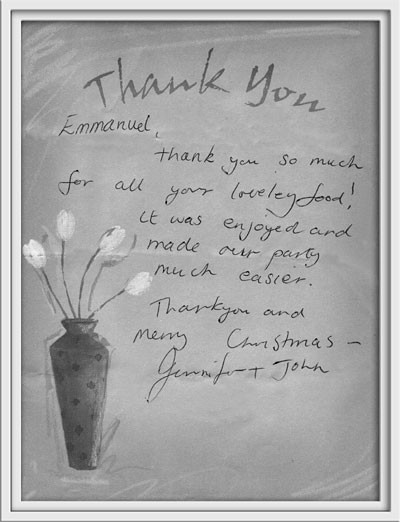 Thank You
Emmanuel,
thank you so much
for all your loveley food!
it was enjoyed and
made our party
much easier.
Thankyou and
Merry Christmas –
Jennifer + John